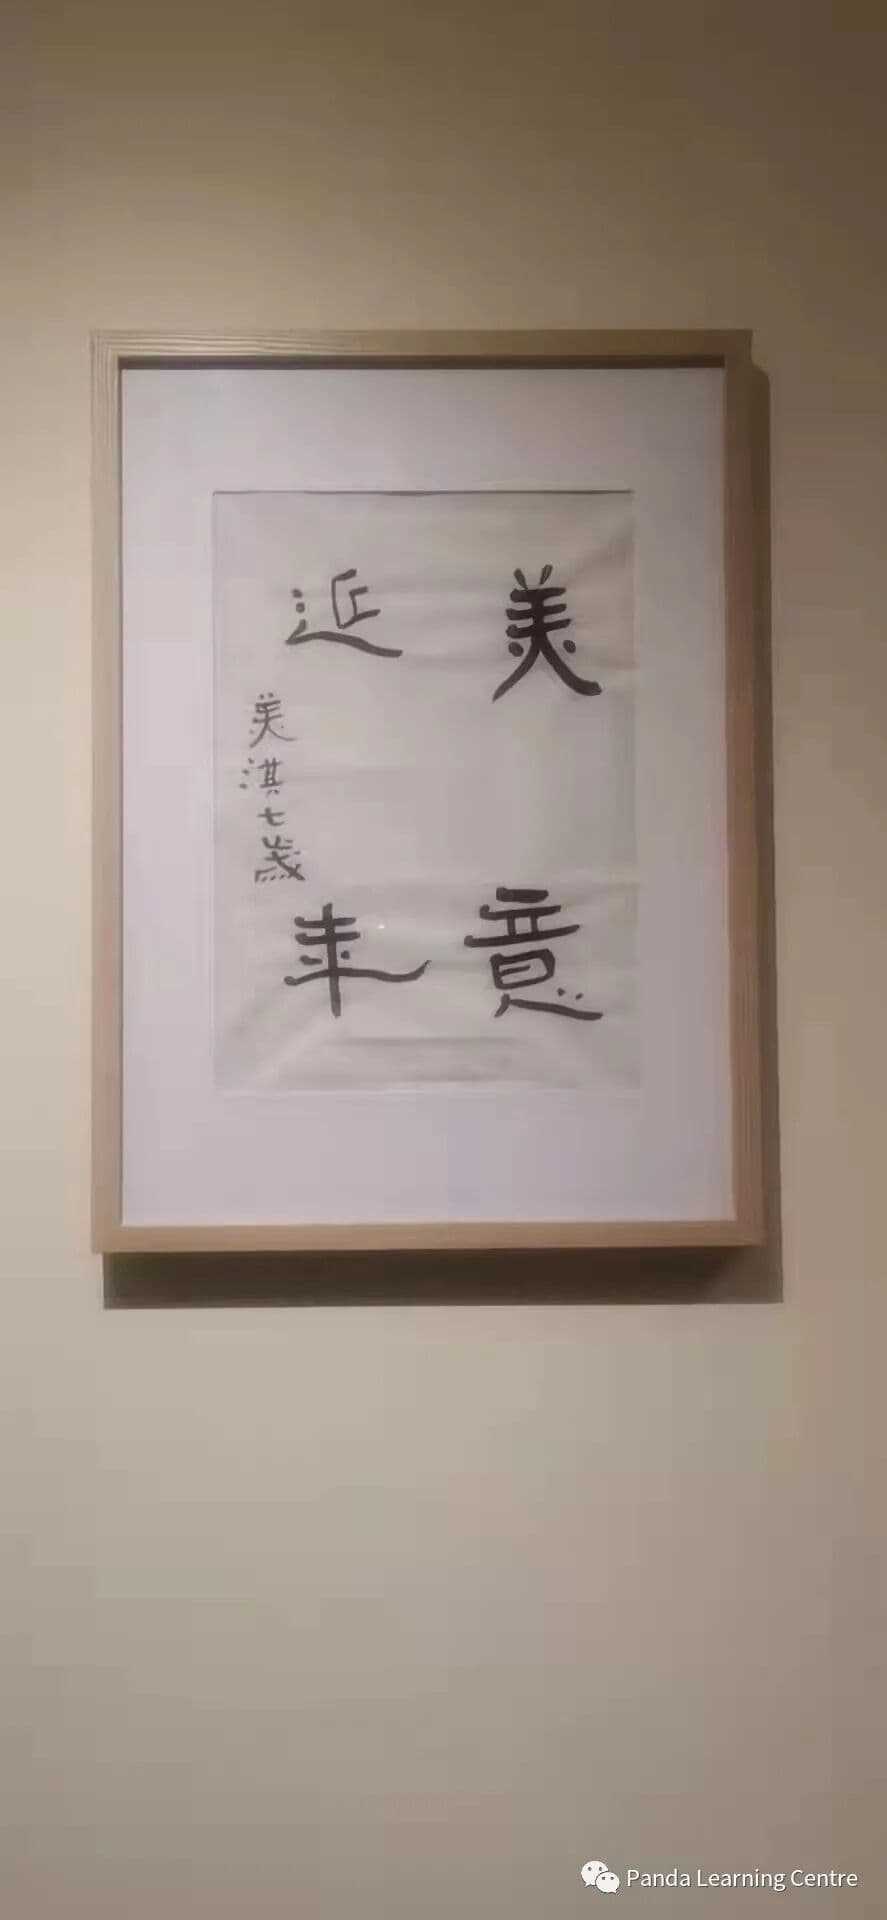 美意
延年
美淇七歲
Panda Learning Centre